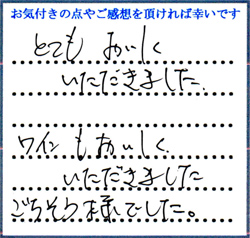 お気付きの点やご感想を頂ければ幸いです
とても おいしく
いただきました。
ワインもおいしく
いただきました
ごちそう様でした。